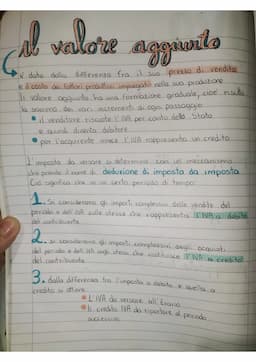 il valore aggiunto
è dato dalla differenza fra il suo prezzo di vendita
e il costo dei fattori produttivi impiegati nella sua produzione
Il valore aggiunto ha una formazione graduale, cioè risulta
la somma dei vari incrementi di ogni passaggio
• il venditore riscuote l'IVA per conto dello Stato
e quindi diventa debitore
• per l'acquirente invece l'IVA rappresenta un credito
L'imposta da versare si determina con un meccanismo
che prende il nome di deduzione di imposta da imposta
Ciò significa che in un certo periodo di tempo:
1. Si considerano gli importi complessivi delle vendite del
periodo e dell'IVA sulle stesse che rappresenta l'IVA a debito
del contribuente
2. si considerano gli importi complessivi degli acquisti
del periodo e dell'IVA sugli stessi che costituisce l'IVA a credito
del contribuente
3. dalla differenza tra l'imposta a debito e quella a
credito si ottiene
• L'IVA da versare all'Erario
• Il credito IVA da riportare al periodo
successivo